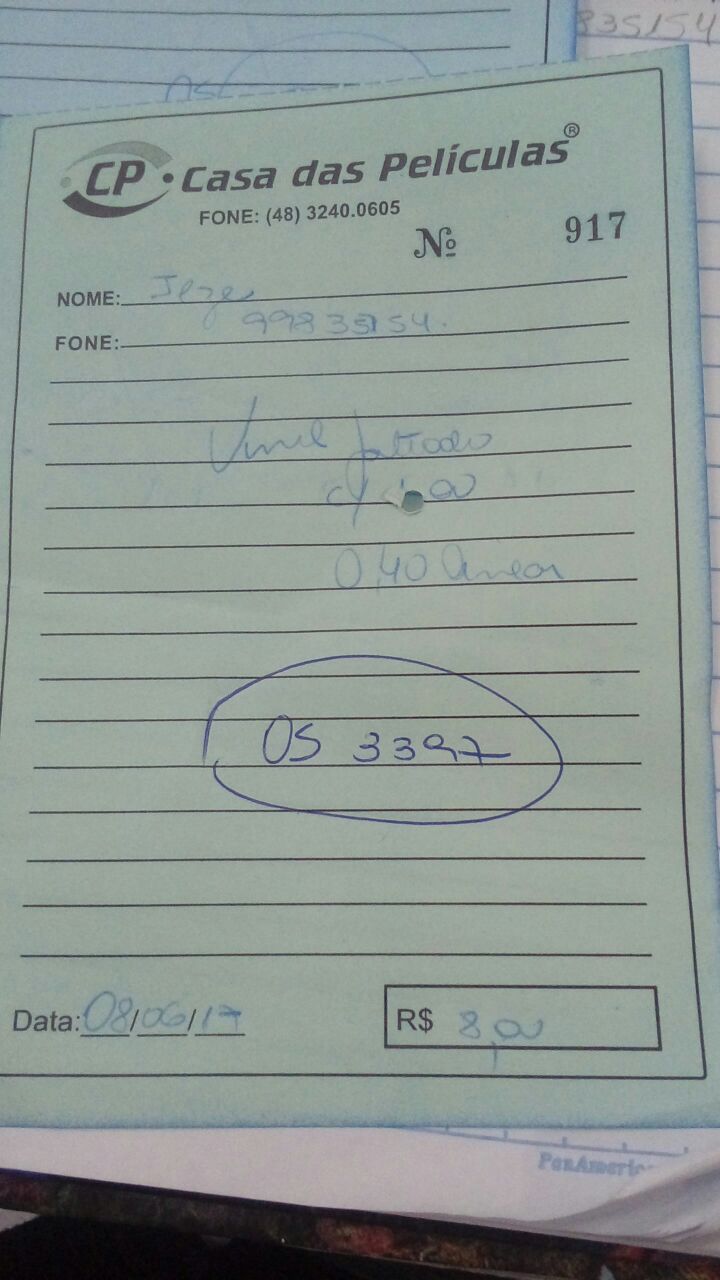 835154
OS
CP • Casa das Películas ®
FONE: (48) 3240.0605
Nº 917
NOME:
FONE: 99835154.
Vinil jateado
c/ 1,00
0,40 linear
OS 3397
Data: 08/06/17
R$ 8,00
PanAmeric